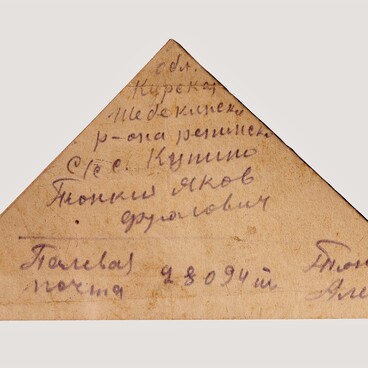 обл.
Курская
Шебекинск
р-она репинск
С/С с. Купино
Тонкий Яков
Фролович
Палевая
почта 28094 т
Тон
Але